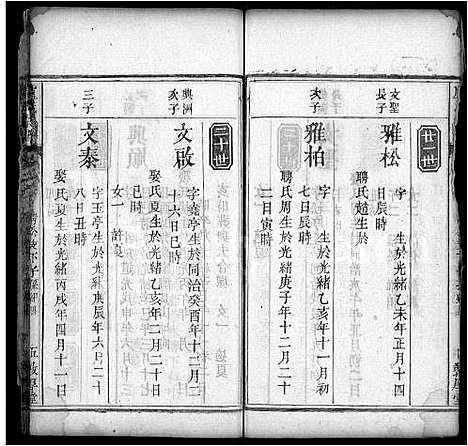 廿一世
文聖
長子
雅松
字 生於光緒乙未年正月十四
日辰時
聘氏趙生於
次子
雅柏
字 生於光緒乙亥年正月初
七日辰時
聘氏周生於光緒庚子年十二月二十
二日寅時
二十世
興洲
次子
文啟
字 亭生於同治癸酉年十二月二
十六日巳時
娶氏夏生於光緒乙亥年二月二十日
時
女一 許夏
三子
文泰
字玉亭生於光緒庚辰年六月二十
八日丑時
娶氏夏生於光緒丙戌年四月十一日